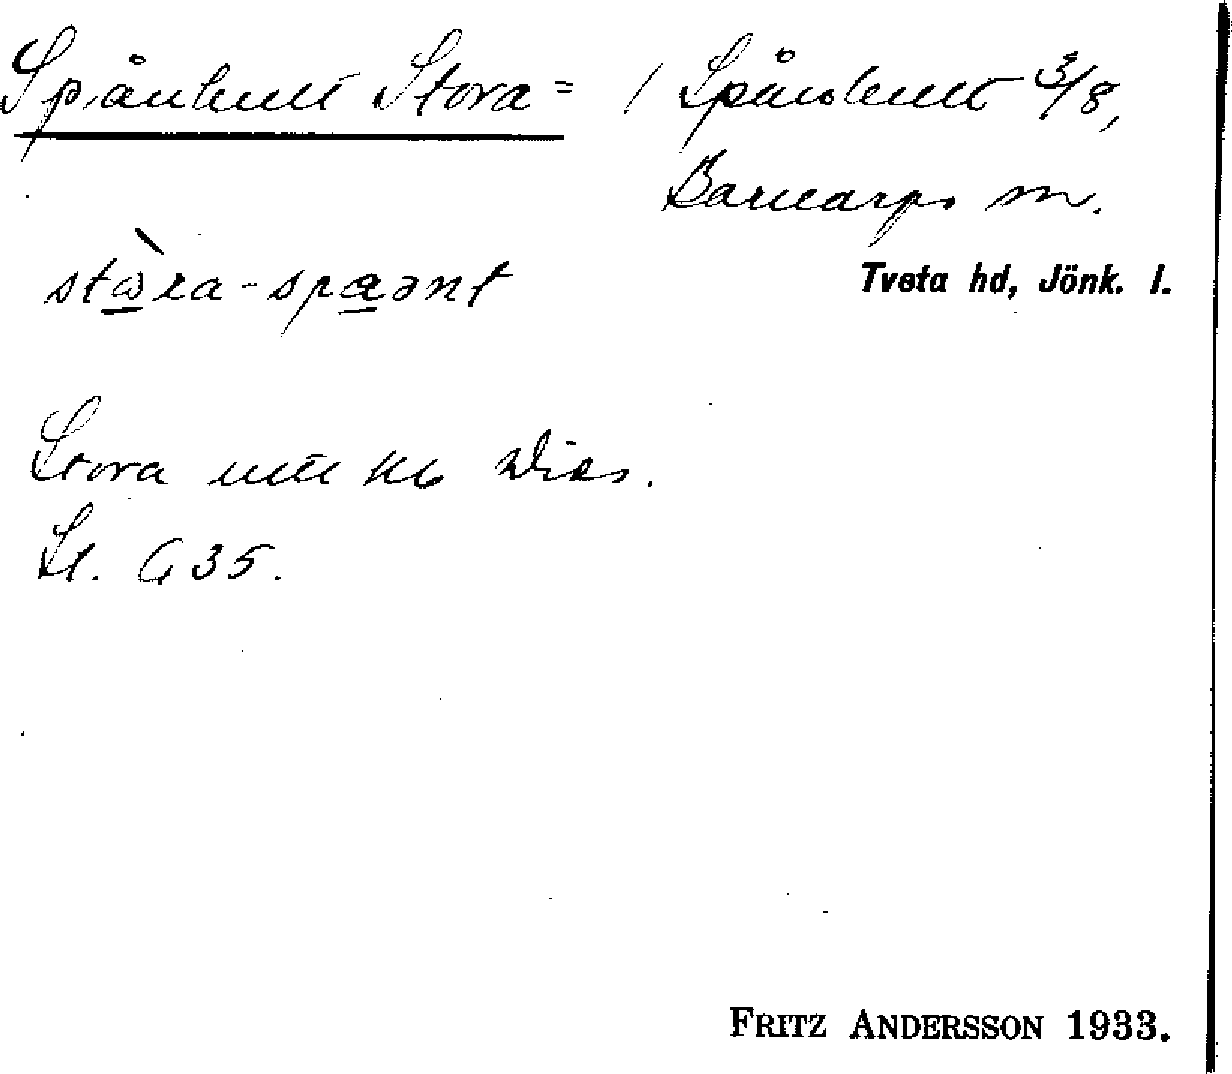 Spånhult Stora= / Spånhult 3/8,
Barnarps sn.
stὼra-spaənt
Tveta hd, Jönk. l.
Stora
St. G 35.
FRITZ ANDERSSON 1933.